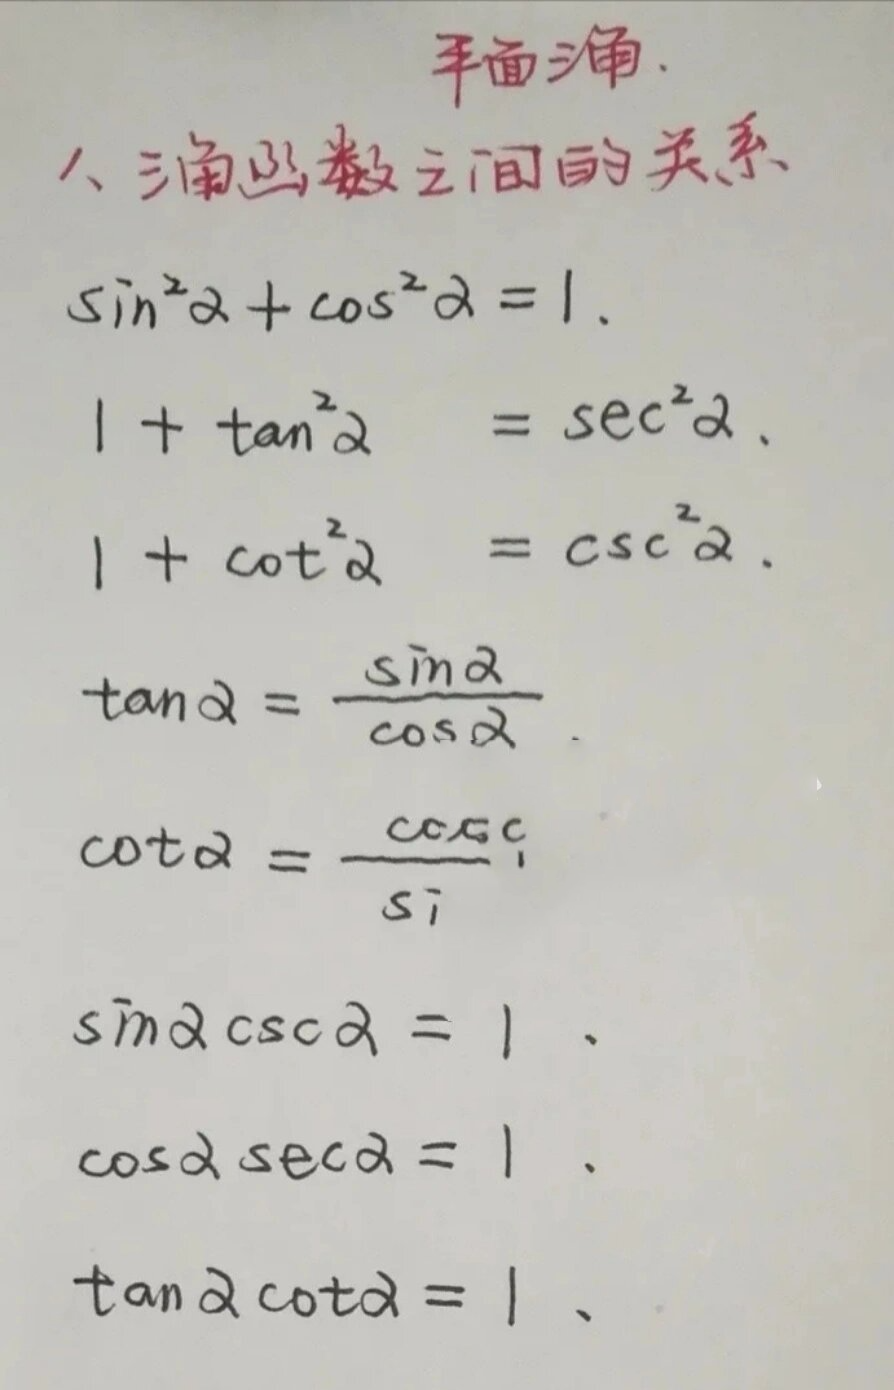 平面三角.
1、三角函数之间的关系
sin²α + cos²α = 1.
1 + tan²α = sec²α.
1 + cot²α = csc²α.
tanα = sinα / cosα.
cotα =
sinα cscα = 1.
cosα secα = 1.
tanα cotα = 1.